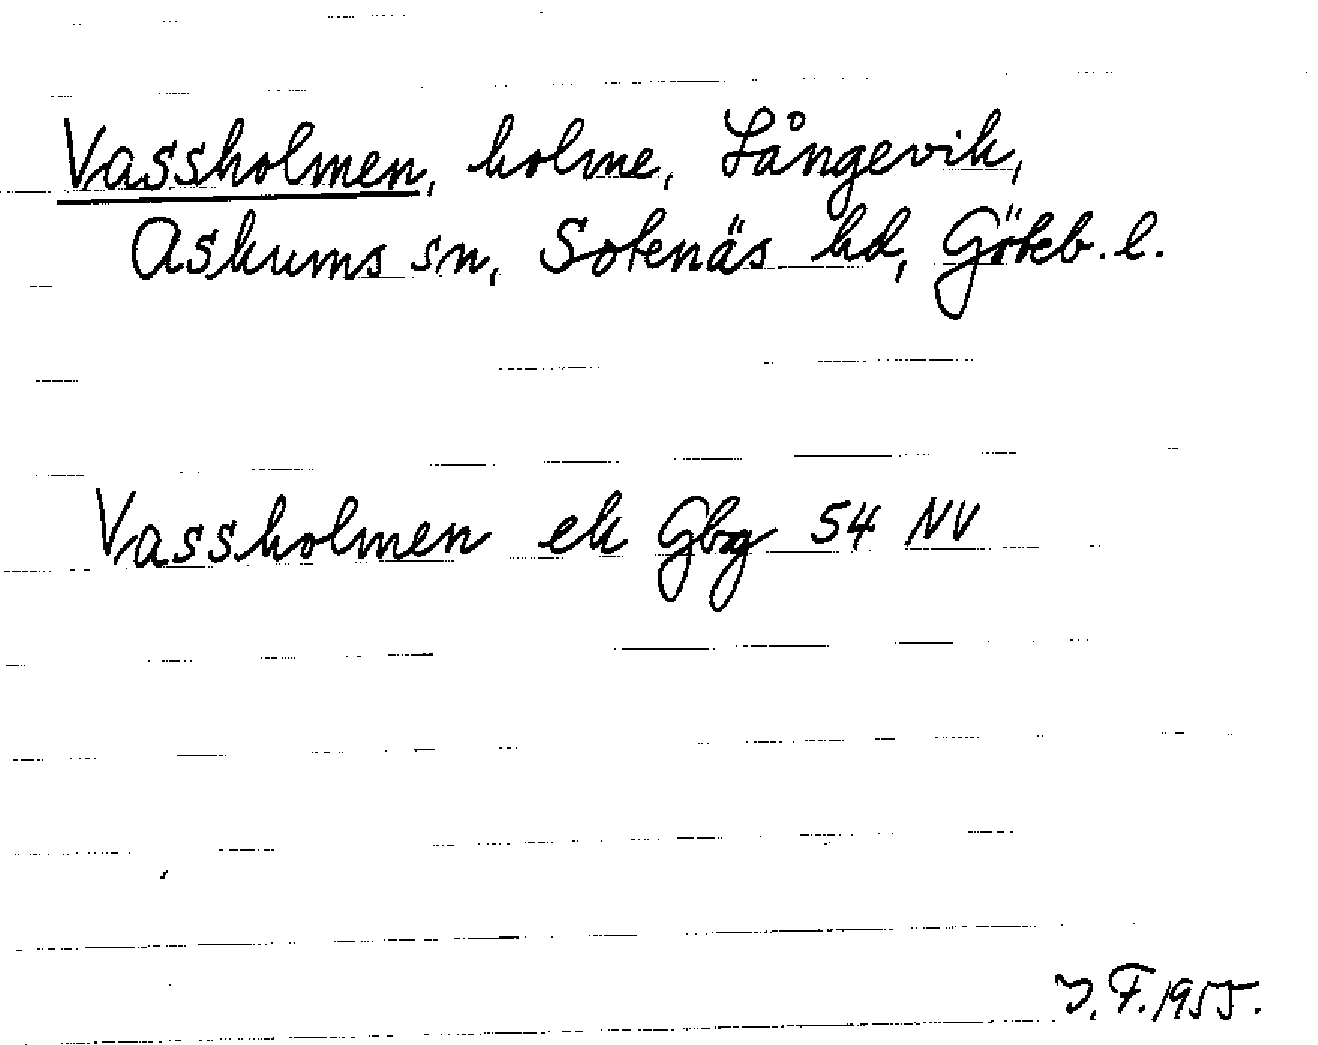 Vassholmen, holme, Långevik,
Askums sn, Sotenäs hd, Göteb. l.
Vassholmen ek Gbg 54 NV
J. F. 1955.